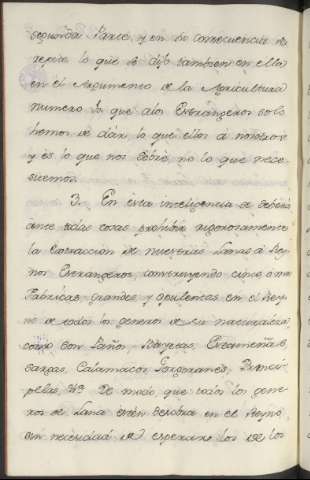 segunda Parte, y en su consecuencia se
repita lo que se dijo tambien en ella
en el Argumento de la Agricultura
numero lo que a los Extrangeros solo
hemos de dar lo que ellos á nosotros
y es lo que nos sobre, no lo que nece
sitemos.
3. En esta inteligencia se deberá
ante todas cosas prohibir rigorosamente
la Extraccion de nuestras Lanas á Rey
nos Extrangeros, construyendo cinco, o mas
Fabricas, grandes, y opulentas en el Rey
no de todos los generos de su naturaleza,
como son Paños, Bayetas, Estameñas,
sargas, Calamacos, Barraganes, Princi
pelas, &a. De modo que todos los gene
ros de Lana esten de sobra en el Reyno,
sin necesidad de esperar los de los